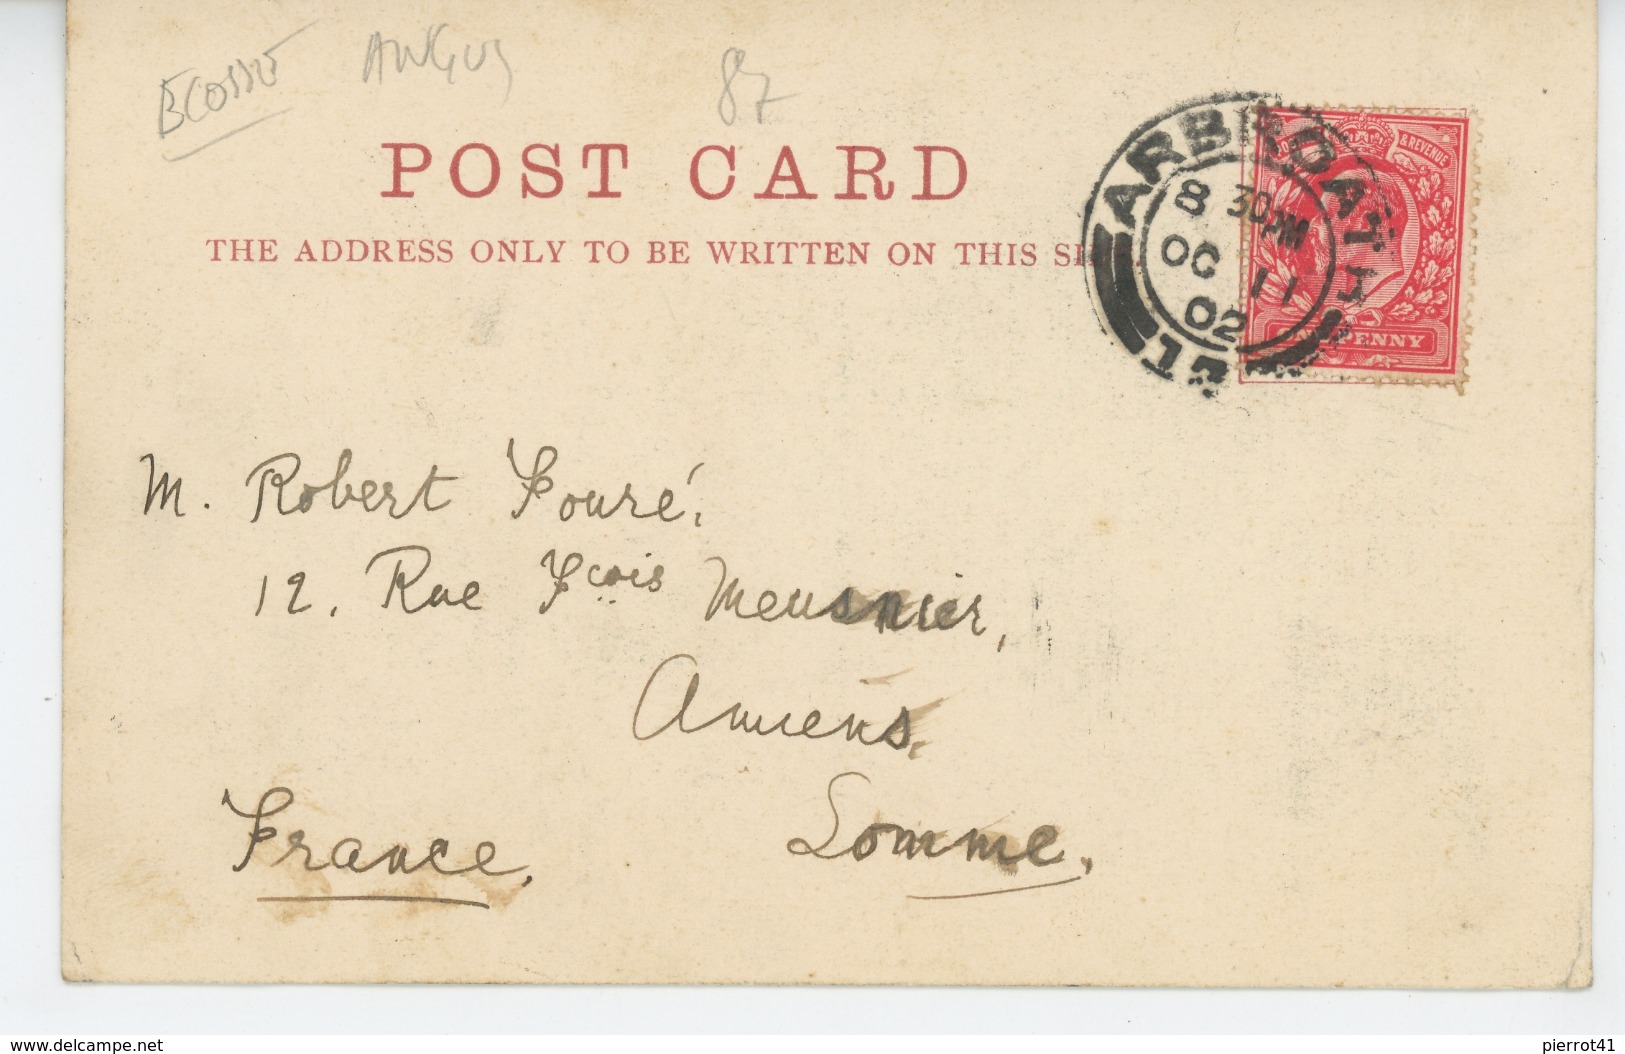 ECOSSE ANGUS 87
POST CARD
THE ADDRESS ONLY TO BE WRITTEN ON THIS
ARBROATH
8 30PM
OC 11
02
& REVENUE
PENNY
M. Robert Fouré,
12, Rue Fçois Meusnier,
Amiens.
Somme.
France.
www.delcampe.net
pierrot41